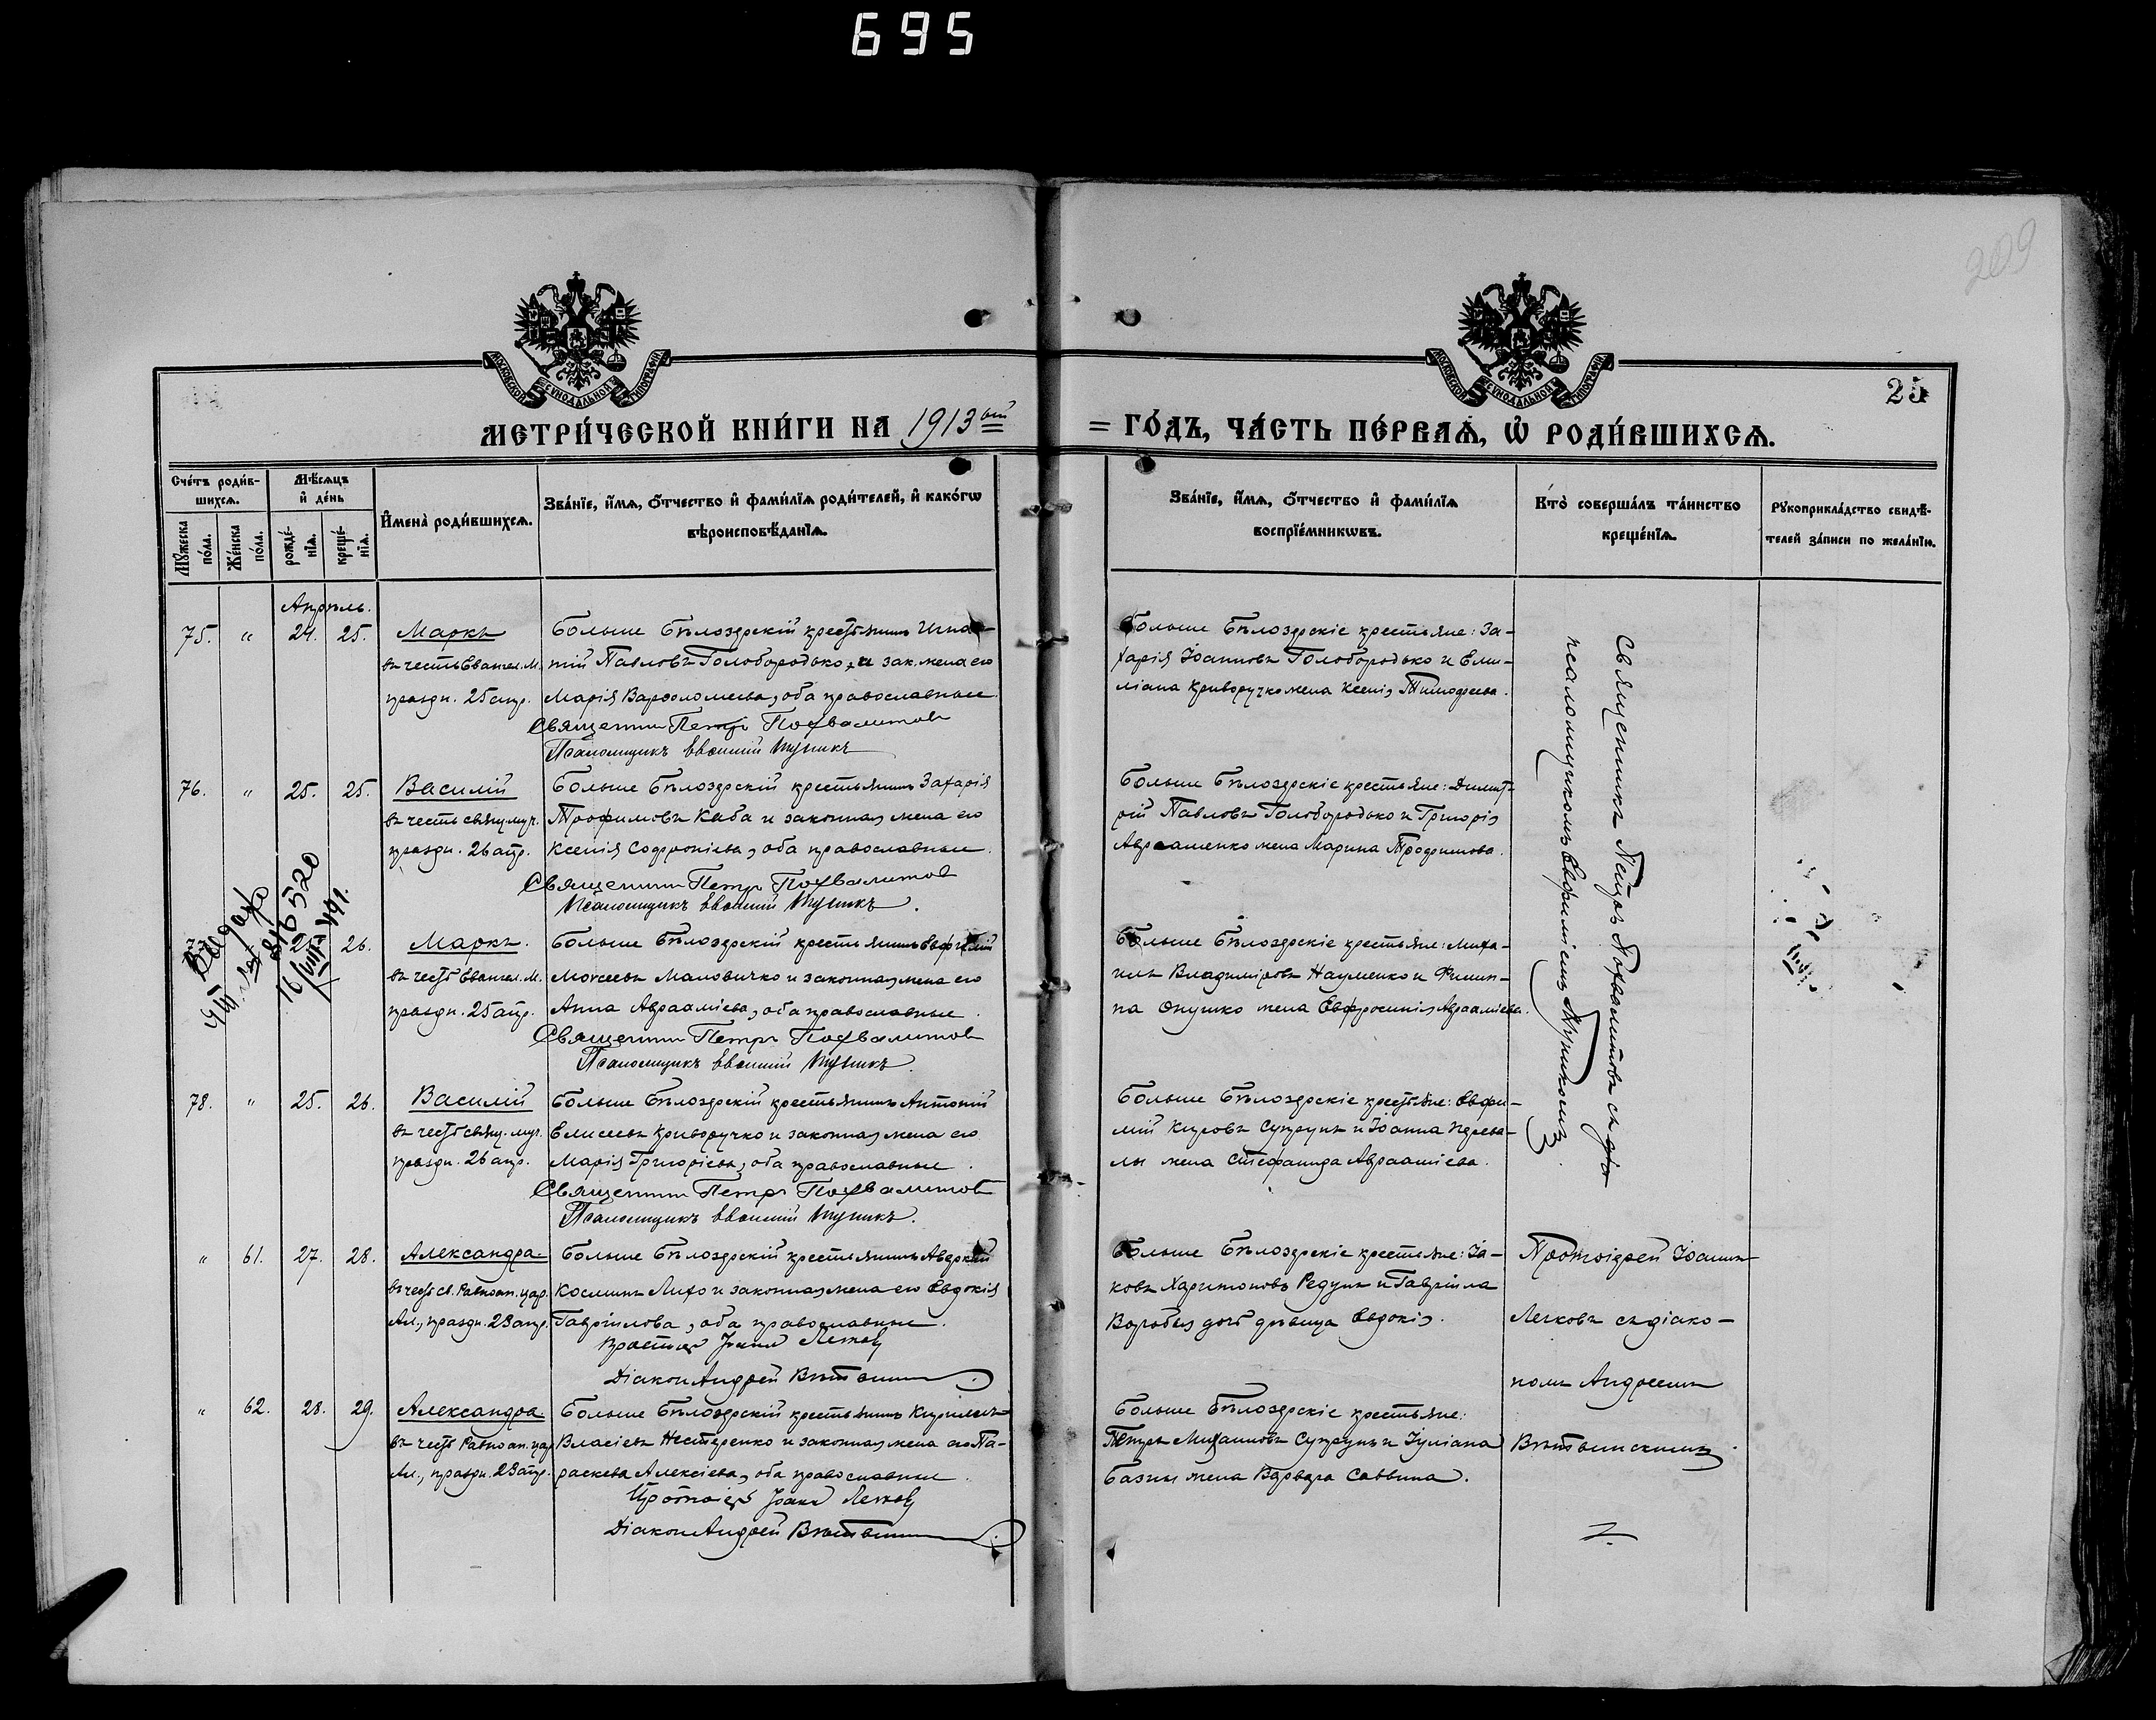 695
209
МОСКОВСКОЙ СѴНОДАЛЬНОЙ ТИПОГРАФІИ
МОСКОВСКОЙ СѴНОДАЛЬНОЙ ТИПОГРАФІИ
25
МЕТРИ́ЧЕСКОЙ КНИ́ГИ НА 1913 ый
= ГО́ДЪ, ЧА́СТЬ ПЕ́РВАѦ, Ѡ РОДИ́ВШИХСѦ.
Сче́тъ роди́в-
шихсѧ.
Мꙋжеска по́ла.
Же́нска по́ла.
Мѣ́сѧцъ
и де́нь
рожде́-
нїѧ.
креще́-
нїѧ.
Имена̀ роди́вшихсѧ.
Зва́нїе, и́мѧ, ѻ́тчество и фами́лїѧ роди́телей, и како́гѡ
вѣроисповѣ́данїѧ.
Зва́нїе, и́мѧ, ѻ́тчество и фами́лїѧ
воспрїе́мникѡвъ.
Кто̀ соверша́лъ та́инство
креще́нїѧ.
Рꙋкоприкла́дство свидѣ́-
телей за́писи по жела́нїю.
Апрѣль.
75. " 24. 25. Маркъ
въ честь Евангел. М.
праздн. 25 апр.
Больше Бѣлозерскій крестьянинъ Игна-
тій Павловъ Голобородько и зак. жена его
Марія Варѳоломеева, оба православные.
Священникъ Петръ Похвалитовъ
Псаломщикъ Евѳимій
Больше Бѣлозерскіе крестьяне: За-
харія Іоанновъ Голобородько и Еми-
ліана Криворучко жена Ксенія Тимоѳеева.
76. " 25. 25. Василій
въ честь свящ. муч.
праздн. 26 апр.
Больше Бѣлозерскій крестьянинъ Захарія
Трофимовъ Каба и законная жена его
Ксенія Софроніева, оба православные.
Священникъ Петръ Похвалитовъ
Псаломщикъ Евѳимій
Больше Бѣлозерскіе крестьяне: Димит-
рій Павловъ Голобородько и Григорія
Авраменко жена Марина Трофимова.
77. 25. 26. Маркъ.
въ честь Евангел. М.
праздн. 25 апр.
Больше Бѣлозерскій крестьянинъ Евфимій
Моисеевъ Маловичко и законная жена его
Анна Авраамiева, оба православные.
Священникъ Петръ Похвалитовъ
Псаломщикъ Евѳимій
Больше Бѣлозерскіе крестьяне: Миха-
илъ Владиміровъ Науменко и Филип-
па Онушко жена Евфросинія Авраамiева.
78. " 25. 26. Василій
въ честь свящ. муч.
праздн. 26 апр.
Больше Бѣлозерскій крестьянинъ Антоній
Елисеевъ Криворучко и законная жена его
Марія Григоріева, оба православные.
Священникъ Петръ Похвалитовъ
Псаломщикъ Евѳимій
Больше Бѣлозерскіе крестьяне: Евфи-
мій Кировъ Супрунъ и Іоанна Перева-
лы жена Стефанида Авраамiева.
Священникъ Петръ Похвалитовъ съ
псаломщикомъ Евфиміемъ
" 61. 27. 28. Александра
въ честь св. Равноап. цар.
Ал., праздн. 23 апр.
Больше Бѣлозерскій крестьянинъ Аверкій
Косминъ Лихо и законная жена его Евдокія
Гавріилова, оба православные.
Протоіерей Іоаннъ
Діаконъ Андрей
Больше Бѣлозерскіе крестьяне: Іа-
ковъ Харитоновъ Редунъ и Гавріила
Воробья дочь дѣвица Евдокія.
Протоіерей Іоаннъ
Легковъ съ діако-
номъ Андреемъ
" 62. 28. 29. Александра
въ честь Равноап. цар.
Ал., праздн. 23 апр.
Больше Бѣлозерскій крестьянинъ Кириллъ
Власіевъ Нестеренко и законная жена его Па-
раскева Алексіева, оба православные.
Протоіерей Іоаннъ
Діаконъ Андрей
Больше Бѣлозерскіе крестьяне:
Петръ Михаиловъ Супрунъ и Іуліана
Базны жена Варвара Саввина.